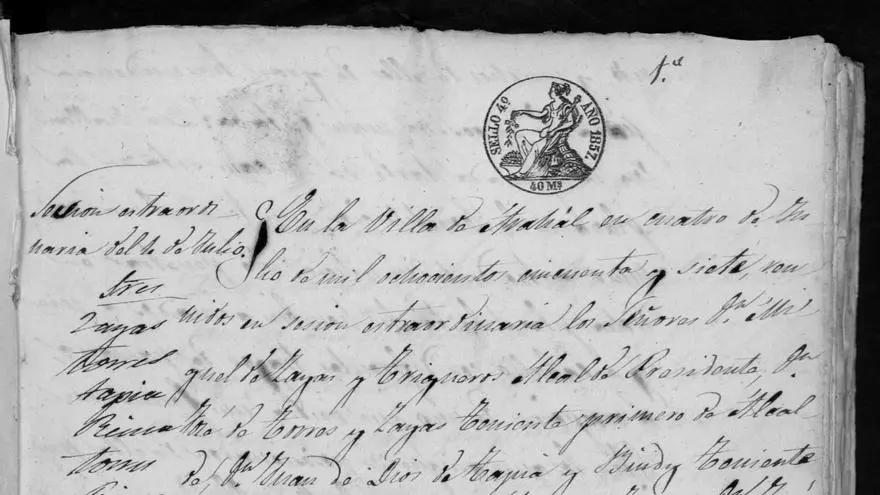 1.ª
SELLO 4º AÑO 1857.
40 Mˢ
Sesion estraordi
naria del 4 de Julio.
Sres
Zayas
torres
tapia
Reina
torres
En la Villa de Arahál en cuatro de Ju
lio de mil ochocientos cincuenta y siete, reu
nidos en sesion estraordinaria los Señores Dⁿ Mi
guel de Zayas y Trigueros Alcalde Presidente, Dⁿ
José de Torres y Zayas Teniente primero de Alcal
de, Dⁿ Juan de Dios de Tapia y Teniente